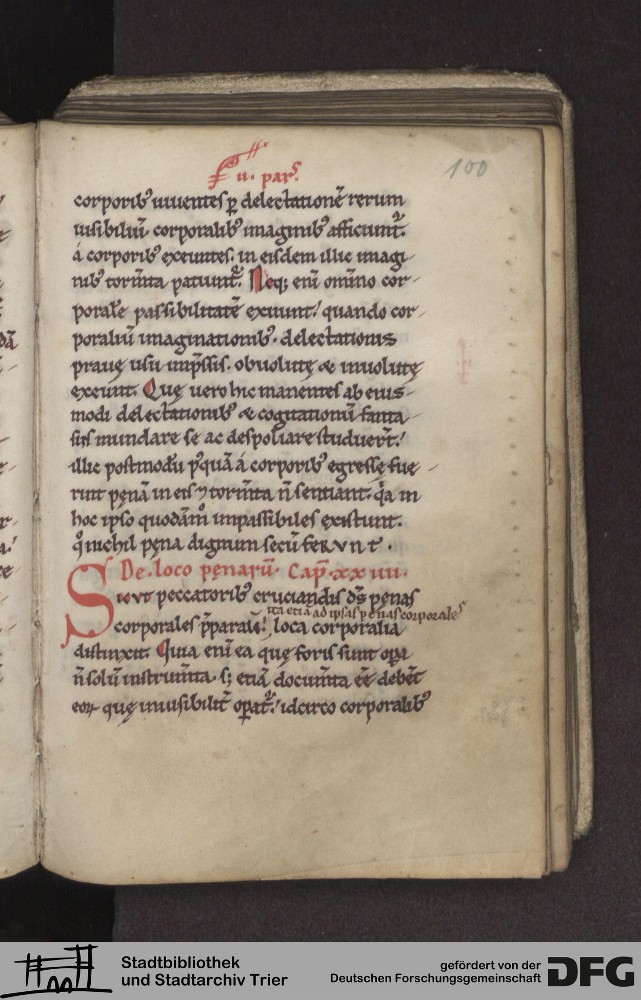 ii. parſ.
100
corporib; uiuenteſ p̱ delectationē rerum
uiſibiliū. corporalib; imaginib; afficiunt̃.
á corporib; exeunteſ. in eiſdem illic imagi
nib; torm̃ta patiunt̃. Neq; eni om̃ino cor
poralē paſſibilitatē exuunt! quando cor
poraliū imaginationib;. delectationiſ
prauę uſu imp̃ſſiſ. obuolutę & inuolutę
exeunt. Quę uero hic manenteſ ab eiuſ
modi delectationib; & cogitationū fanta
ſiiſ mundare ſe ac deſpoliare ſtuduer̃t!
illic poſtmodū p̃quā á corporib; egreſſę fue
rint pęnā in eiſ ⁊ torm̃ta ñ ſentiant. q̓a in
hoc ipſo quodāmͦ impaſſibileſ exiſtunt.
qͥ nichil pęna dignum ſecū ferunt.
De. loco pęnarū. Cap̃. xx iiii.
Sicut peccatorib; cruciandiſ dſ̃ pęnaſ
ita etiā ad ipſaſ pęnaſ corporaleſ
corporaleſ p̃parauit! loca corporalia
diſtinxit. Quia eni ea quę foriſ ſunt op̱a
ñ ſolū inſtrum̃ta. ſ; etiā docum̃ta eē debēt
eoꝝ quę inuiſibilit̃ op̱at̃! idcirco corporalib;
Stadtbibliothek
und Stadtarchiv Trier
gefördert von der
Deutschen Forschungsgemeinschaft
DFG